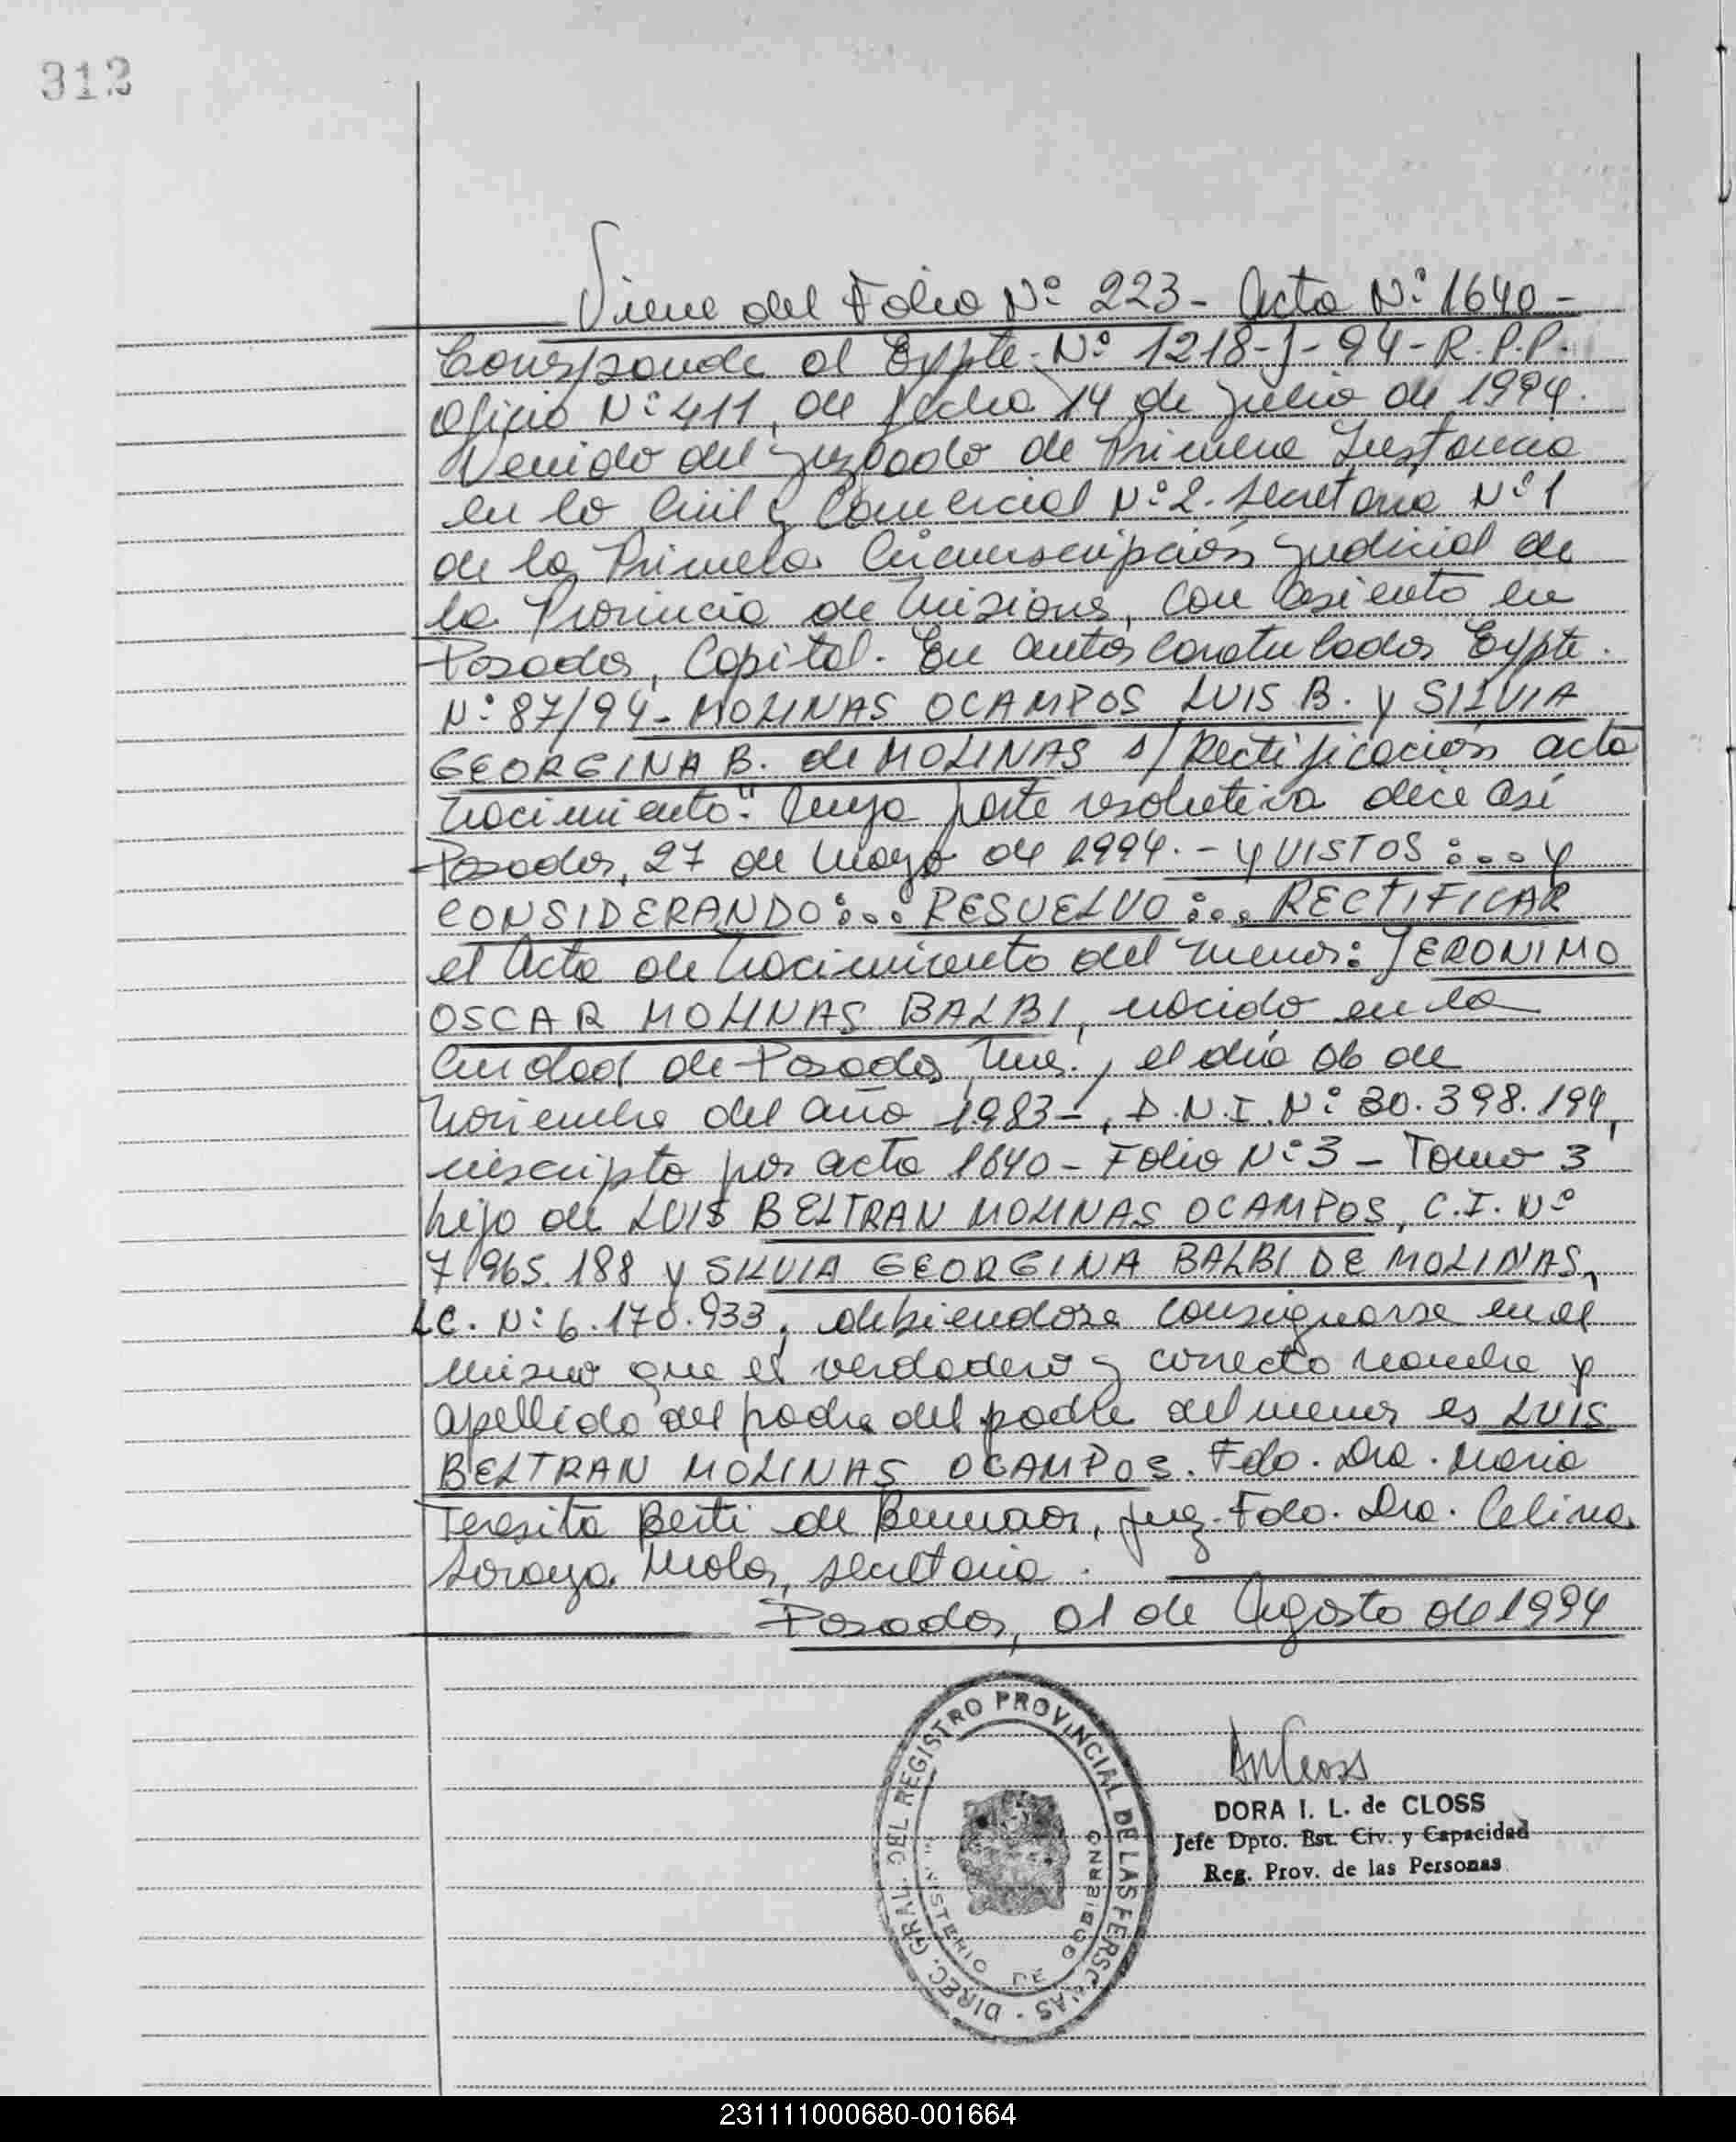 312
Viene del Folio Nº 223- Acta Nº 1640-
Corresponde al Expte. Nº 1218-J-94-R.P.P.
Oficio Nº 411, de fecha 14 de julio de 1994.
Venido del juzgado de Primera Instancia
en lo Civil y Comercial Nº 2. Secretaria Nº 1
de la Primera Circunscripción judicial de
la Provincia de Misiones, con asiento en
Posadas, Capital. En autos caratulados Expte.
Nº 87/94- MOLINAS OCAMPOS LUIS B. y SILVIA
GEORGINA B. de MOLINAS s/ Rectificación acta
nacimiento". Cuya parte resolutiva dice así
Posadas, 27 de Mayo de 1994.- Y VISTOS:... y
CONSIDERANDO:... RESUELVO:... RECTIFICAR
el Acta de Nacimiento del menor: JERONIMO
OSCAR MOLINAS BALBI, nacido en la
Ciudad de Posadas, Mnes., el día 06 de
Noviembre del año 1983-, D.N.I. Nº 30.398.194,
inscripto por acta 1640- Folio Nº 3 - Tomo 3
hijo de LUIS BELTRAN MOLINAS OCAMPOS, C.I. Nº
7.965.188 y SILVIA GEORGINA BALBI DE MOLINAS,
LC. Nº 6.170.933, debiendose consignarse en el
mismo que el verdadero y correcto nombre y
apellido del padre del padre del menor es LUIS
BELTRAN MOLINAS OCAMPOS. Fdo. Dra. Maria
Teresita Berti de, juez. Fdo. Dra. Celina
Soraya Mola, secretaria.
Posadas, 01 de Agosto de 1994
DIREC. GRAL. DEL REGISTRO PROVINCIAL DE LAS PERSONAS -
MINISTERIO DE GOBIERNO
DORA I. L. de CLOSS
Jefe Dpto. Est. Civ. y Capacidad
Reg. Prov. de las Personas
231111000680-001664